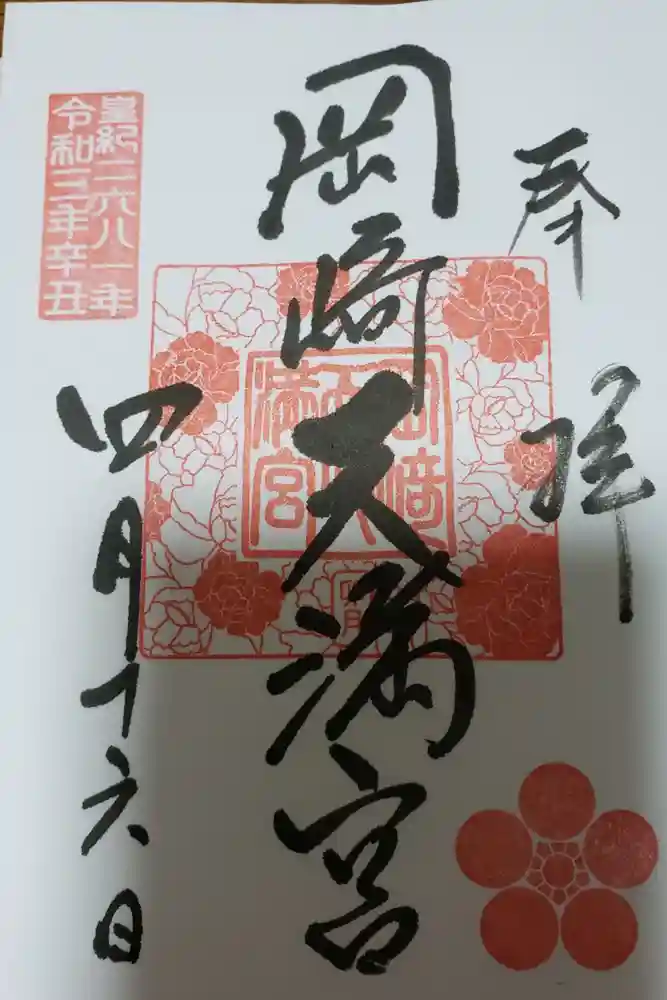 奉拝
岡崎天満宮
岡崎
天
満宮
皇紀二六八一年
令和三年辛丑
四月十六日